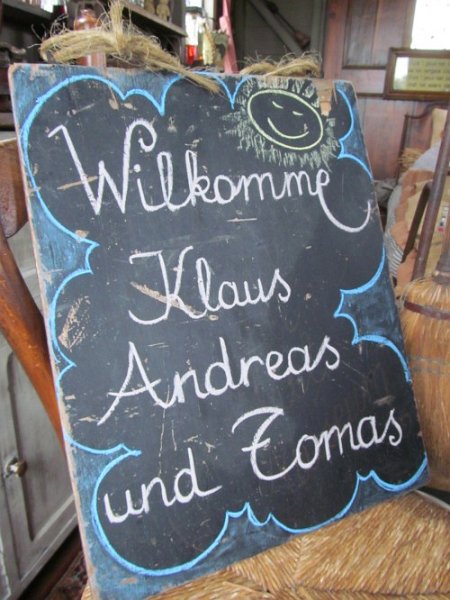 Wilkomme
Klaus
Andreas
und Tomas